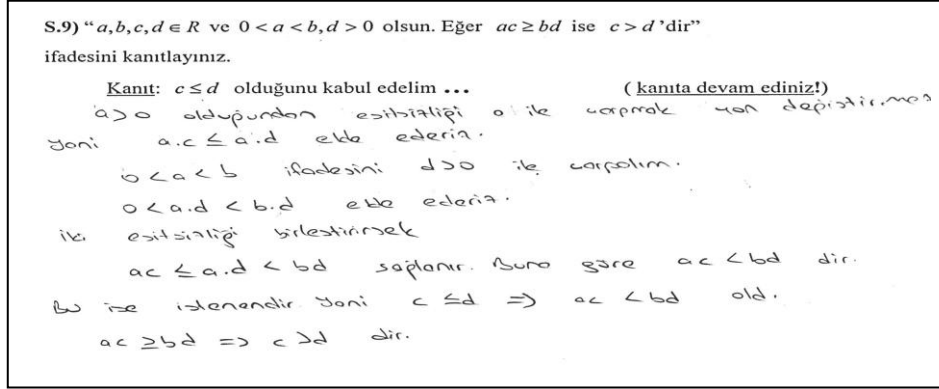 S.9) “a,b,c,d ∈ R ve 0 < a < b, d > 0 olsun. Eğer ac ≥ bd ise c > d 'dir”
ifadesini kanıtlayınız.
Kanıt: c ≤ d olduğunu kabul edelim ... ( kanıta devam ediniz!)
a>0 olduğundan eşitsizliği a ile çarpmak yön değiştirmez
yani a.c ≤ a.d elde ederiz.
0<a<b ifadesini d>0 ile çarpalım.
0<a.d < b.d elde ederiz.
iki eşitsizliği birleştirirsek
ac ≤ a.d < bd sağlanır. Buna göre ac < bd dir.
Bu ise istenendir. Yani c ≤ d => ac < bd old.
ac ≥ bd => c > d dir.